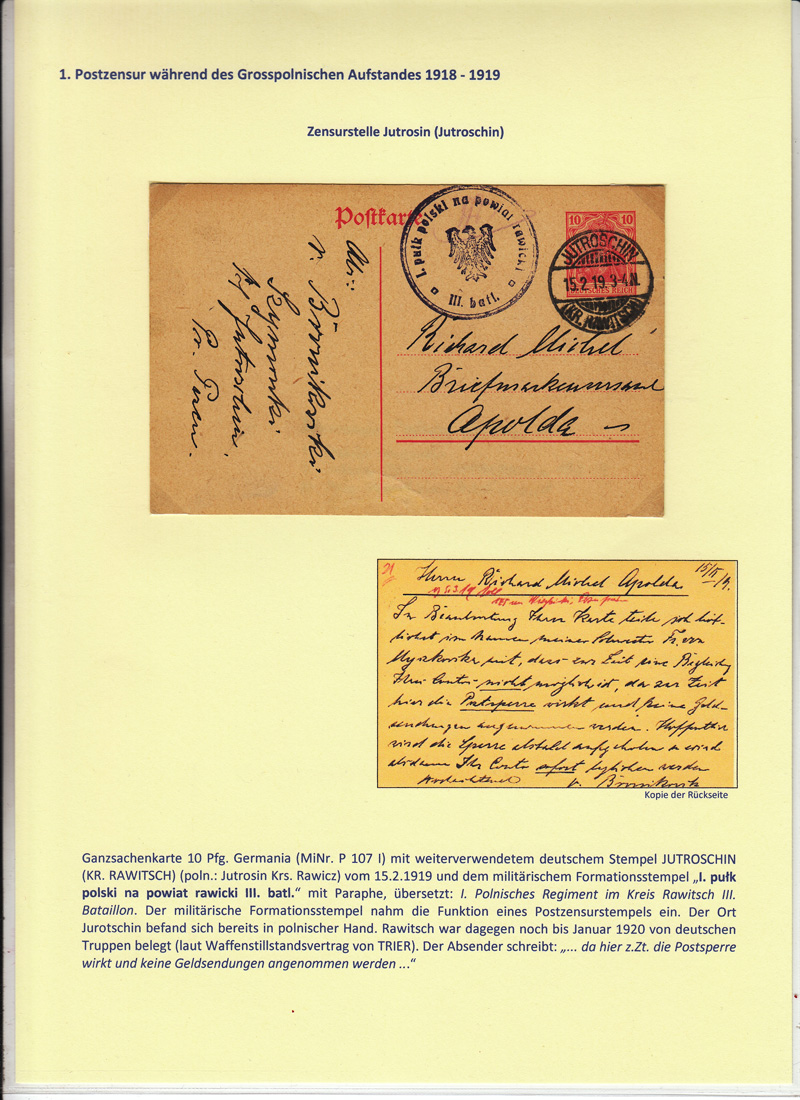 1. Postzensur während des Grosspolnischen Aufstandes 1918 - 1919
Zensurstelle Jutrosin (Jutroschin)
Postkarte
I. pułk polski na powiat rawicki
III. batl.
10 10
DEUTSCHES REICH
JUTROSCHIN
15.2.19.3-4N.
(KR. RAWITSCH)
Richard Michel
Briefmarkenversand
Apolda
Abs:
v. Bronikowski
Jutroschin
Pr. Posen.
Herrn Richard Michel Apolda 15/II 19.
In Beantwortung Ihrer Karte teile ich höf-
lichst im Namen meiner Schwester
mit, dass zur Zeit eine Begleichg
Ihres Contos nicht möglich ist, da zur Zeit
hier die Postsperre wirkt und keine Geld-
sendungen angenommen werden. Hoffentlich
wird die Sperre alsbald aufgehoben u wird
alsdann Ihr Conto sofort beglichen werden
Hochachtend v. Bronikowski
Kopie der Rückseite
Ganzsachenkarte 10 Pfg. Germania (MiNr. P 107 I) mit weiterverwendetem deutschem Stempel JUTROSCHIN
(KR. RAWITSCH) (poln.: Jutrosin Krs. Rawicz) vom 15.2.1919 und dem militärischem Formationsstempel „I. pułk
polski na powiat rawicki III. batl.“ mit Paraphe, übersetzt: I. Polnisches Regiment im Kreis Rawitsch III.
Bataillon. Der militärische Formationsstempel nahm die Funktion eines Postzensurstempels ein. Der Ort
Jurotschin befand sich bereits in polnischer Hand. Rawitsch war dagegen noch bis Januar 1920 von deutschen
Truppen belegt (laut Waffenstillstandsvertrag von TRIER). Der Absender schreibt: „... da hier z.Zt. die Postsperre
wirkt und keine Geldsendungen angenommen werden ...“